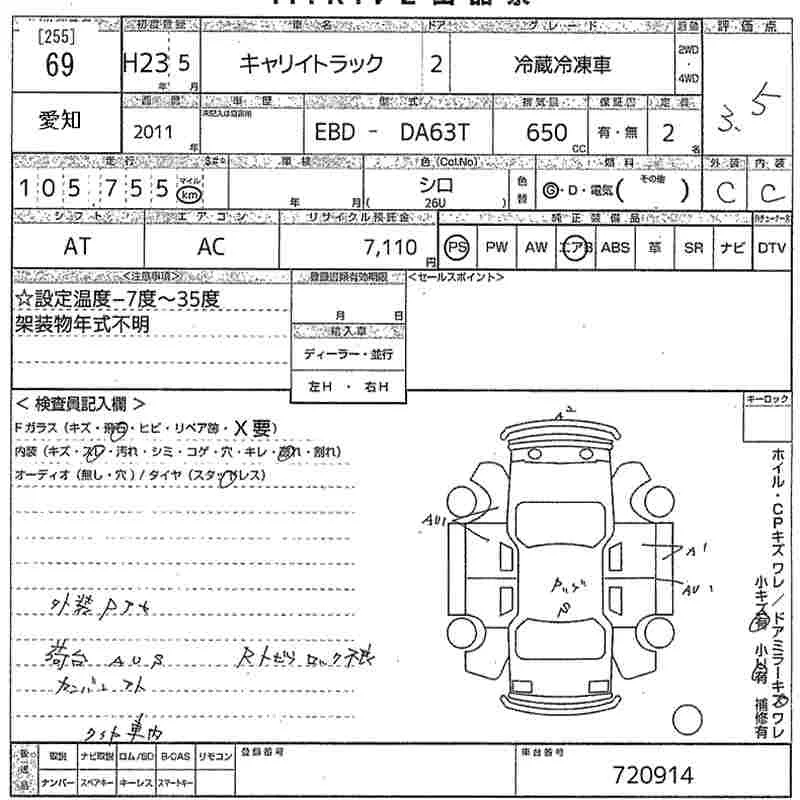 [255]
69
初度登録
車名
ドア
グレード
評価点
H23 5
年 月
キャリイトラック
2
冷蔵冷凍車
2WD
・
4WD
3.5
愛知
車歴
型式
排気量
定員
2011
年
EBD - DA63T
650
CC
有・無
2
名
走行
車検
色(Col.No)
燃料
外装
内装
105755
マイル
km
年 月
シロ
( 26U )
色替
G・D・電気( その他 )
C
C
シフト
エアコン
リサイクル預託金
純正装備品
AT
AC
7,110
円
PS
PW
AW
エアB
ABS
革
SR
ナビ
DTV
<注意事項>
登録書類有効期限
<セールスポイント>
☆設定温度−7度〜35度
架装物年式不明
月 日
輸入車
ディーラー・並行
左H ・ 右H
< 検査員記入欄 >
キーロック
Fガラス (キズ・飛石・ヒビ・リペア跡・X要)
内装 (キズ・スレ・汚れ・シミ・コゲ・穴・キレ・割れ)
オーディオ (無し・穴) / タイヤ (スタッドレス)
A2
AU1
A1
AU1
外装
荷台 AUS
ロック不良
車内
ホイル・CPキズ ワレ / ドアミラーキズ ワレ
小キズ有 小U有 補修有
取説
ナビ取説
ロム/SD
B-CAS
リモコン
登録番号
車台番号
ナンバー
スペアキー
キーレス
スマートキー
720914